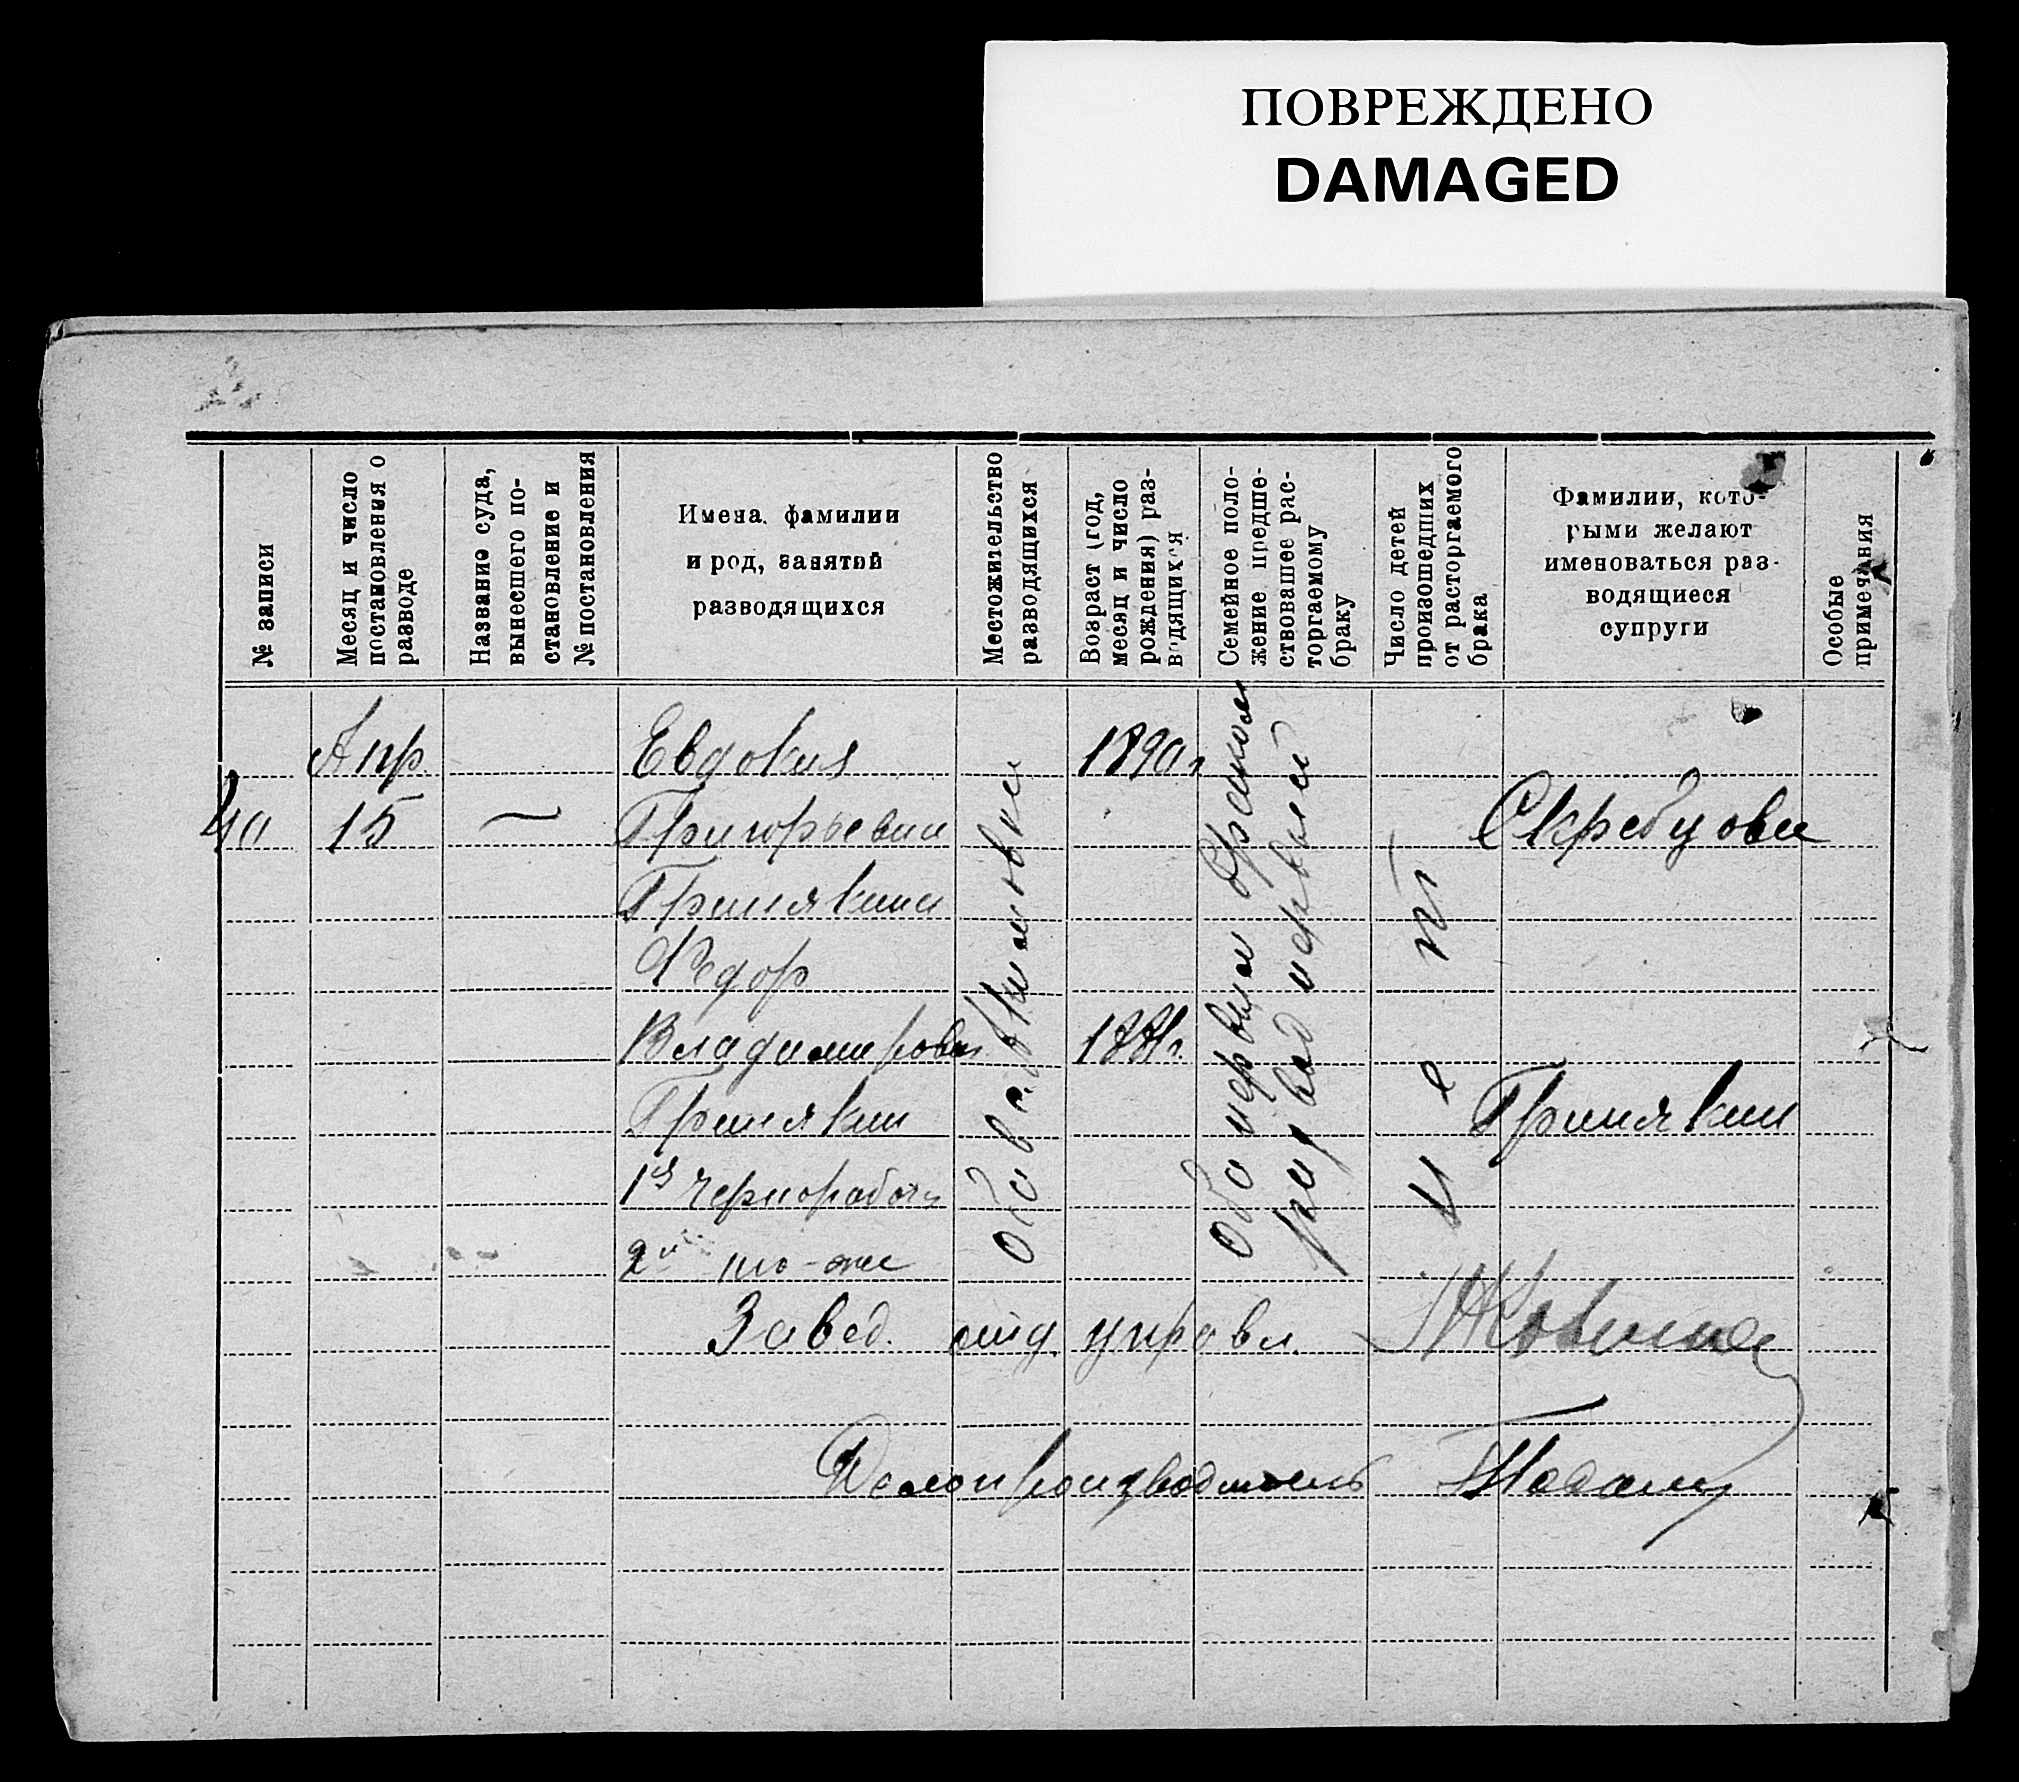 ПОВРЕЖДЕНО
DAMAGED
№ записи
Месяц и число
постановления о
разводе
Название суда,
вынесшего по-
становление и
№ постановления
Имена, фамилии
и род, занятой
разводящихся
Местожительство
разводящихся
Возраст (год,
месяц и число
рождения) раз-
водящихся
Семейное поло-
жение предше-
ствовавшее рас-
торгаемому
браку
Число детей
произошедших
от расторгаемого
брака
Фамилии, кото-
рыми желают
именоваться раз-
водящиеся
супруги
Особые
примечания
40
Апр.
15
—
Евдокия
Григорьевна
Гринякина
Федор
Владимирович
Гринякин
1я чернорабоч
2й то-же
оба в с.
1890 г
1881 г.
оба первым браком
развод первый
нет
Скребцова
Гринякин
Завед. отд. управл.
Делопроизводитель